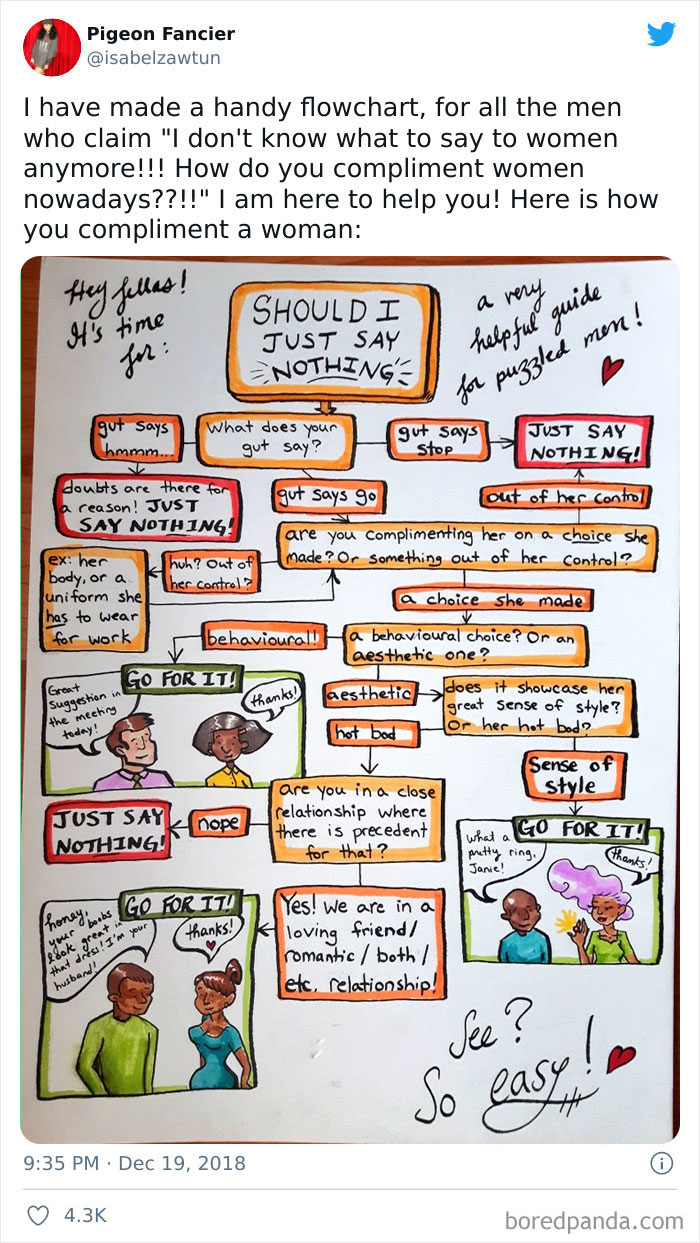 Pigeon Fancier
@isabelzawtun
I have made a handy flowchart, for all the men
who claim "I don't know what to say to women
anymore!!! How do you compliment women
nowadays??!!" I am here to help you! Here is how
you compliment a woman:
Hey fellas!
It's time
for:
SHOULD I
JUST SAY
NOTHING
a very
helpful guide
for puzzled men!
gut says
hmmm...
What does your
gut say?
gut says
stop
JUST SAY
NOTHING!
doubts are there for
a reason! JUST
SAY NOTHING!
gut says go
out of her control
are you complimenting her on a choice she
made? Or something out of her control?
ex: her
body, or a
uniform she
has to wear
for work
huh? Out of
her control?
a choice she made
behavioural!
a behavioural choice? Or an
aesthetic one?
GO FOR IT!
Great
suggestion in
the meeting
today!
thanks!
aesthetic
does it showcase her
great sense of style?
Or her hot bod?
hot bod
Sense of
style
are you in a close
relationship where
there is precedent
for that?
nope
JUST SAY
NOTHING!
GO FOR IT!
What a
pretty ring,
Janie!
thanks!
GO FOR IT!
honey,
your boobs
look great in
that dress! I'm your
husband!
thanks!
Yes! we are in a
loving friend/
romantic/both/
etc. relationship!
See?
So easy!
9:35 PM · Dec 19, 2018
4.3K
boredpanda.com